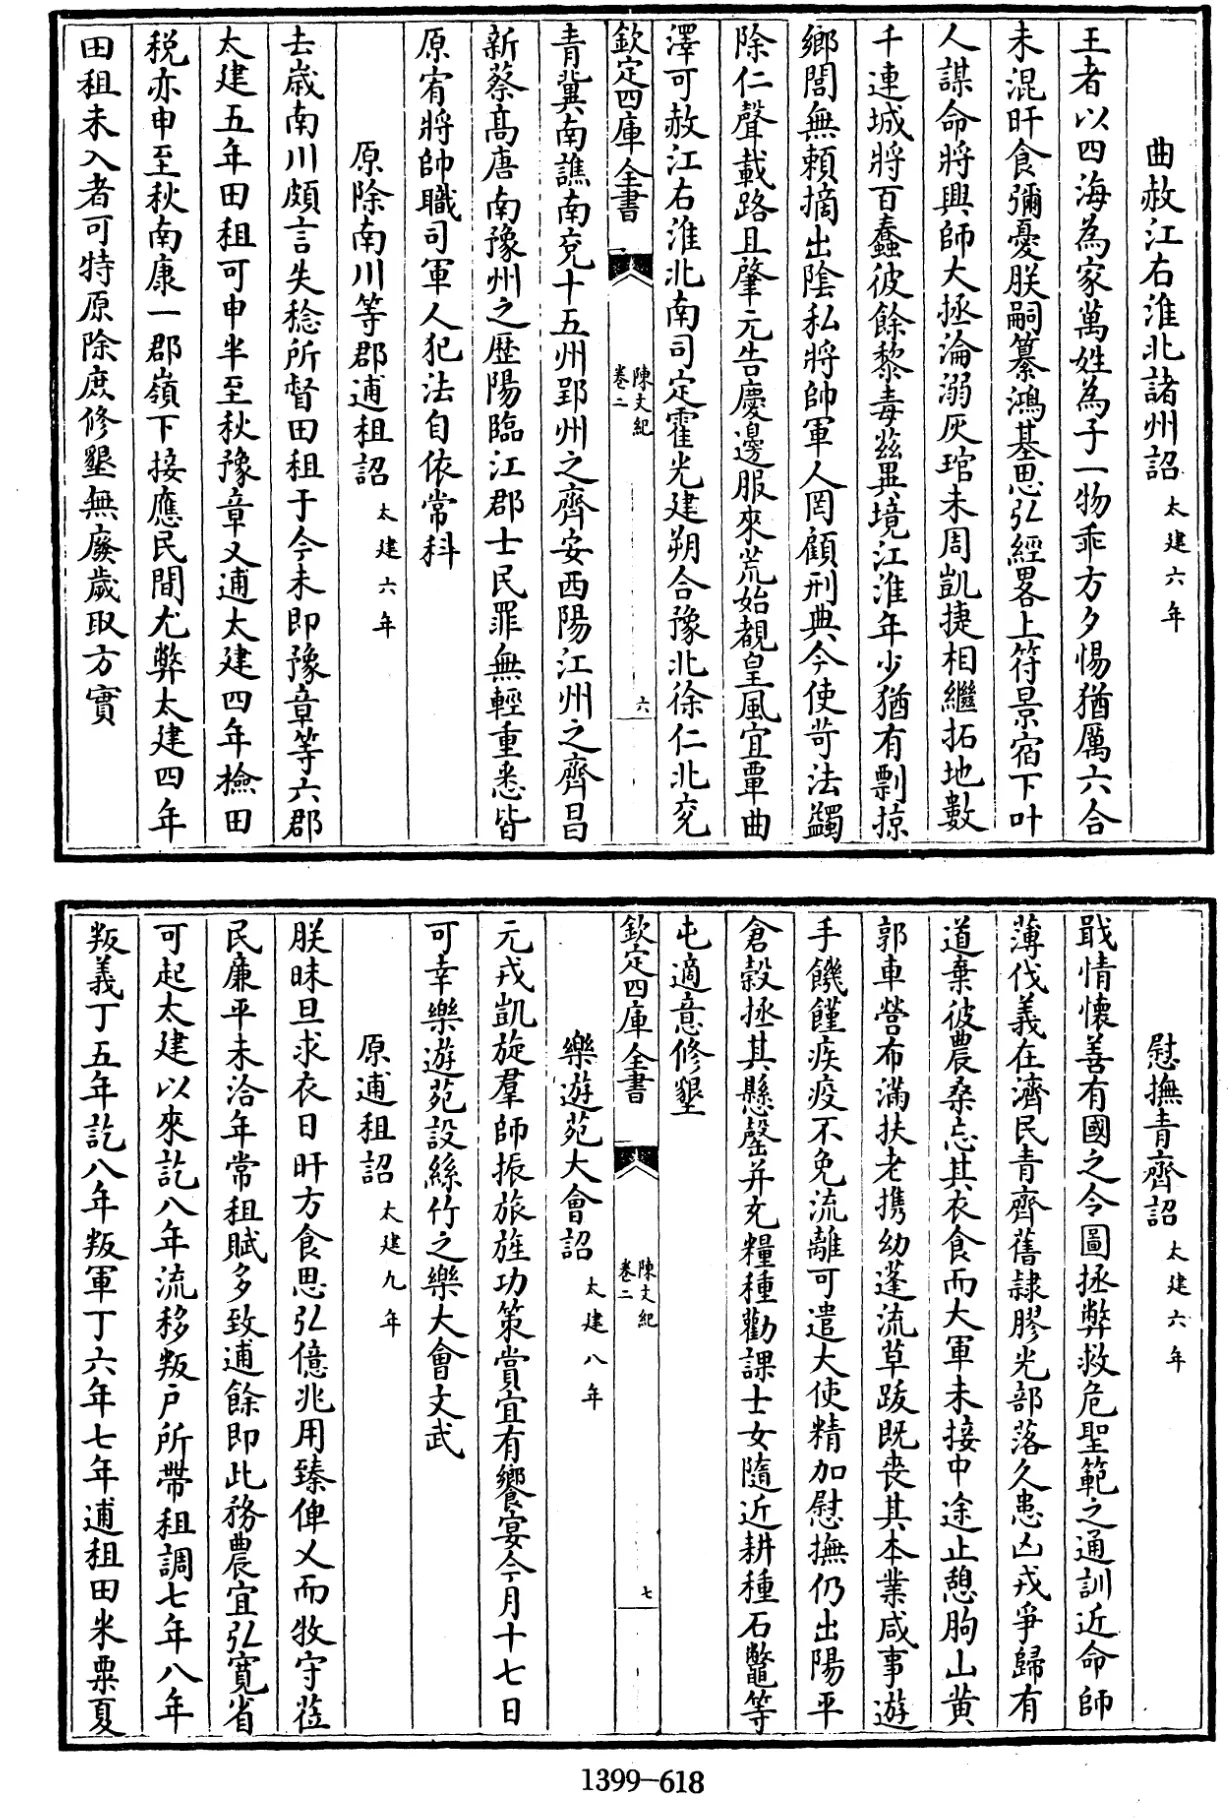 曲赦江右淮北諸州詔 太建六年
王者以四海為家萬姓為子一物乖方夕惕猶厲六合
未混旰食彌憂朕嗣纂鴻基思弘經畧上符景宿下叶
人謀命將興師大拯淪溺灰琯未周凱捷相繼拓地數
千連城將百蠢彼餘黎毒茲異境江淮年少猶有剽掠
鄉閭無賴摘出陰私將帥軍人罔顧刑典今使苛法蠲
除仁聲載路且肇元告慶邊服來荒始覩皇風宜覃曲
澤可赦江右淮北南司定霍光建朔合豫北徐仁北兗
欽定四庫全書 陳文紀 卷二 六
青冀南譙南兗十五州郢州之齊安西陽江州之齊昌
新蔡髙唐南豫州之歷陽臨江郡士民罪無輕重悉皆
原宥將帥職司軍人犯法自依常科
原除南川等郡逋租詔 太建六年
去歲南川頗言失稔所督田租于今未即豫章等六郡
太建五年田租可申半至秋豫章又逋太建四年檢田
税亦申至秋南康一郡嶺下接應民間尤弊太建四年
田租未入者可特原除庶修墾無廢歲取方實
慰撫青齊詔 太建六年
戢情懷善有國之令圖拯弊救危聖範之通訓近命師
薄伐義在濟民青齊舊隷膠光部落久患凶戎爭歸有
道棄彼農桑忘其衣食而大軍未接中途止憩朐山黄
郭車營布滿扶老攜幼蓬流草跋既喪其本業咸事遊
手饑饉疾疫不免流離可遣大使精加慰撫仍出陽平
倉穀拯其懸罄并充糧種勸課士女隨近耕種石鼈等
屯適意修墾
欽定四庫全書 陳文紀 卷二 七
樂遊苑大會詔 太建八年
元戎凱旋羣師振旅旌功策賞宜有饗宴今月十七日
可幸樂遊苑設絲竹之樂大會文武
原逋租詔 太建九年
朕昧旦求衣日旰方食思弘億兆用臻俾乂而牧守莅
民廉平未洽年常租賦多致逋餘即此務農宜弘寛省
可起太建以來訖八年流移叛户所帶租調七年八年
叛義丁五年訖八年叛軍丁六年七年逋租田米粟夏
1399—618